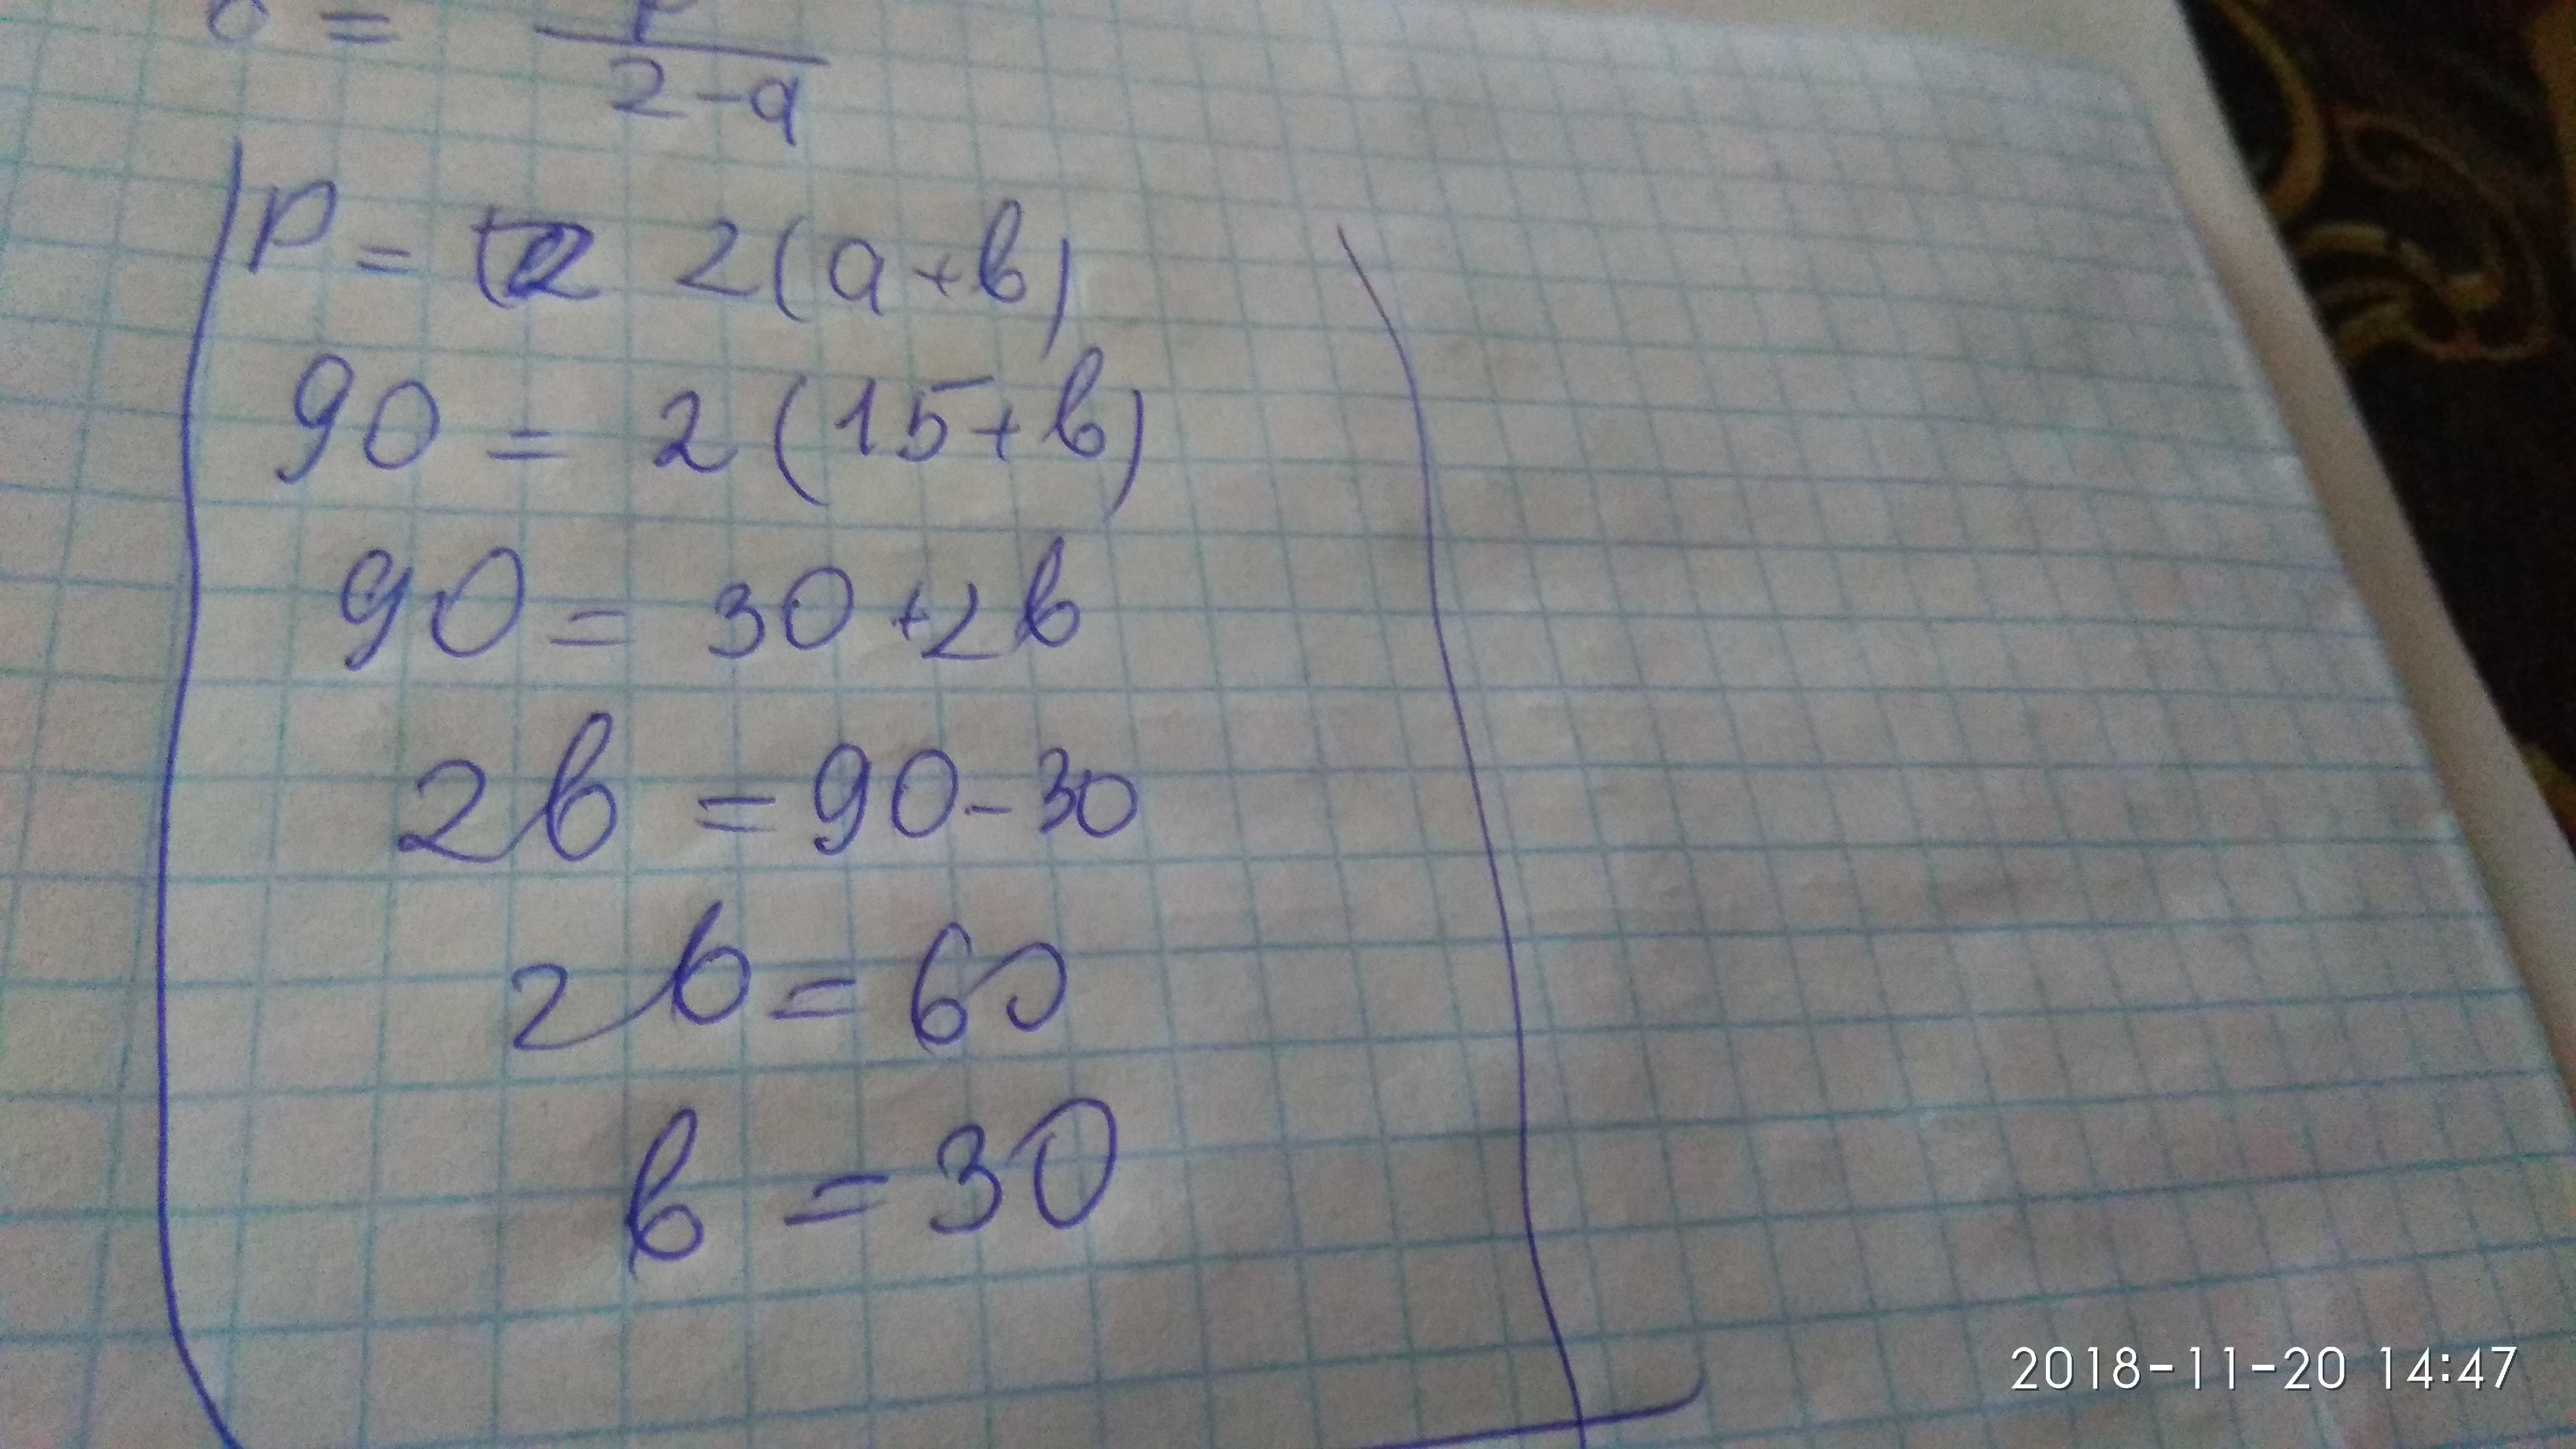 =
2-a
P = 2(a+b)
90 = 2(15+b)
90 = 30+2b
2b = 90-30
2b = 60
b = 30
2018-11-20 14:47